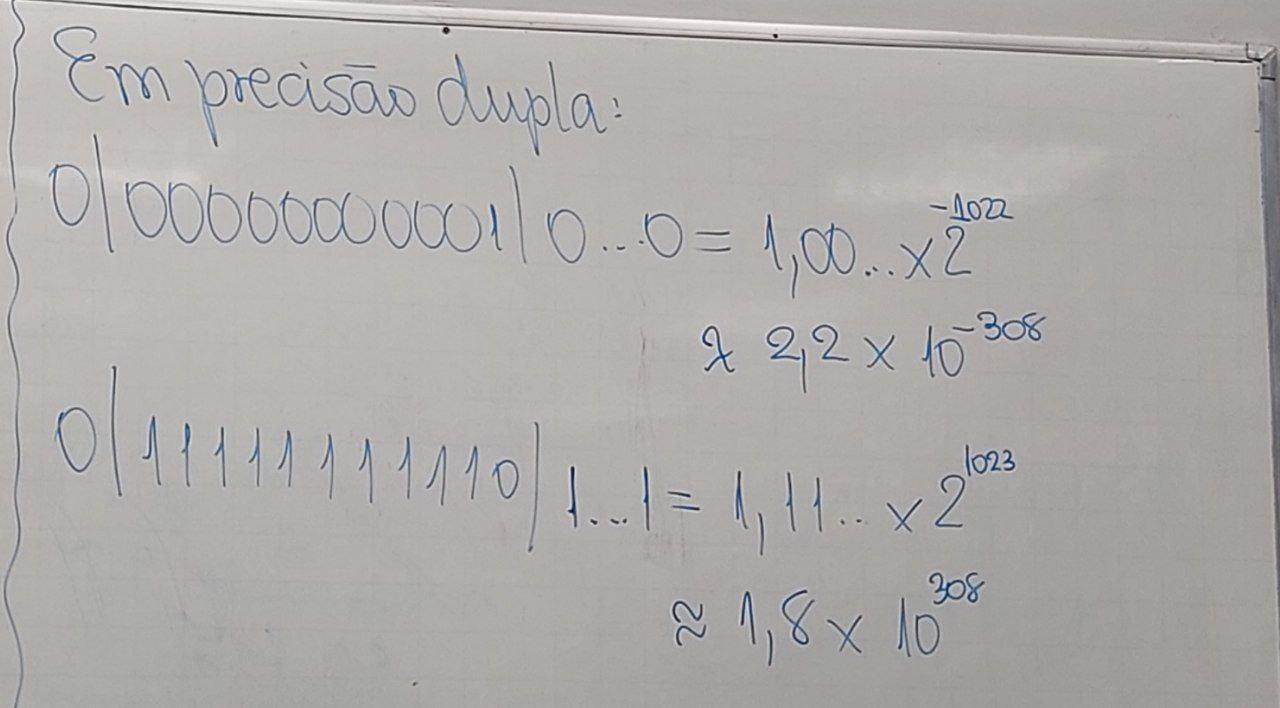 Em precisão dupla:
0|00000000001|0...0 = 1,00... x 2^-1022
≈ 2,2 x 10^-308
0|11111111110|1...1 = 1,11.. x 2^1023
≈ 1,8 x 10^308